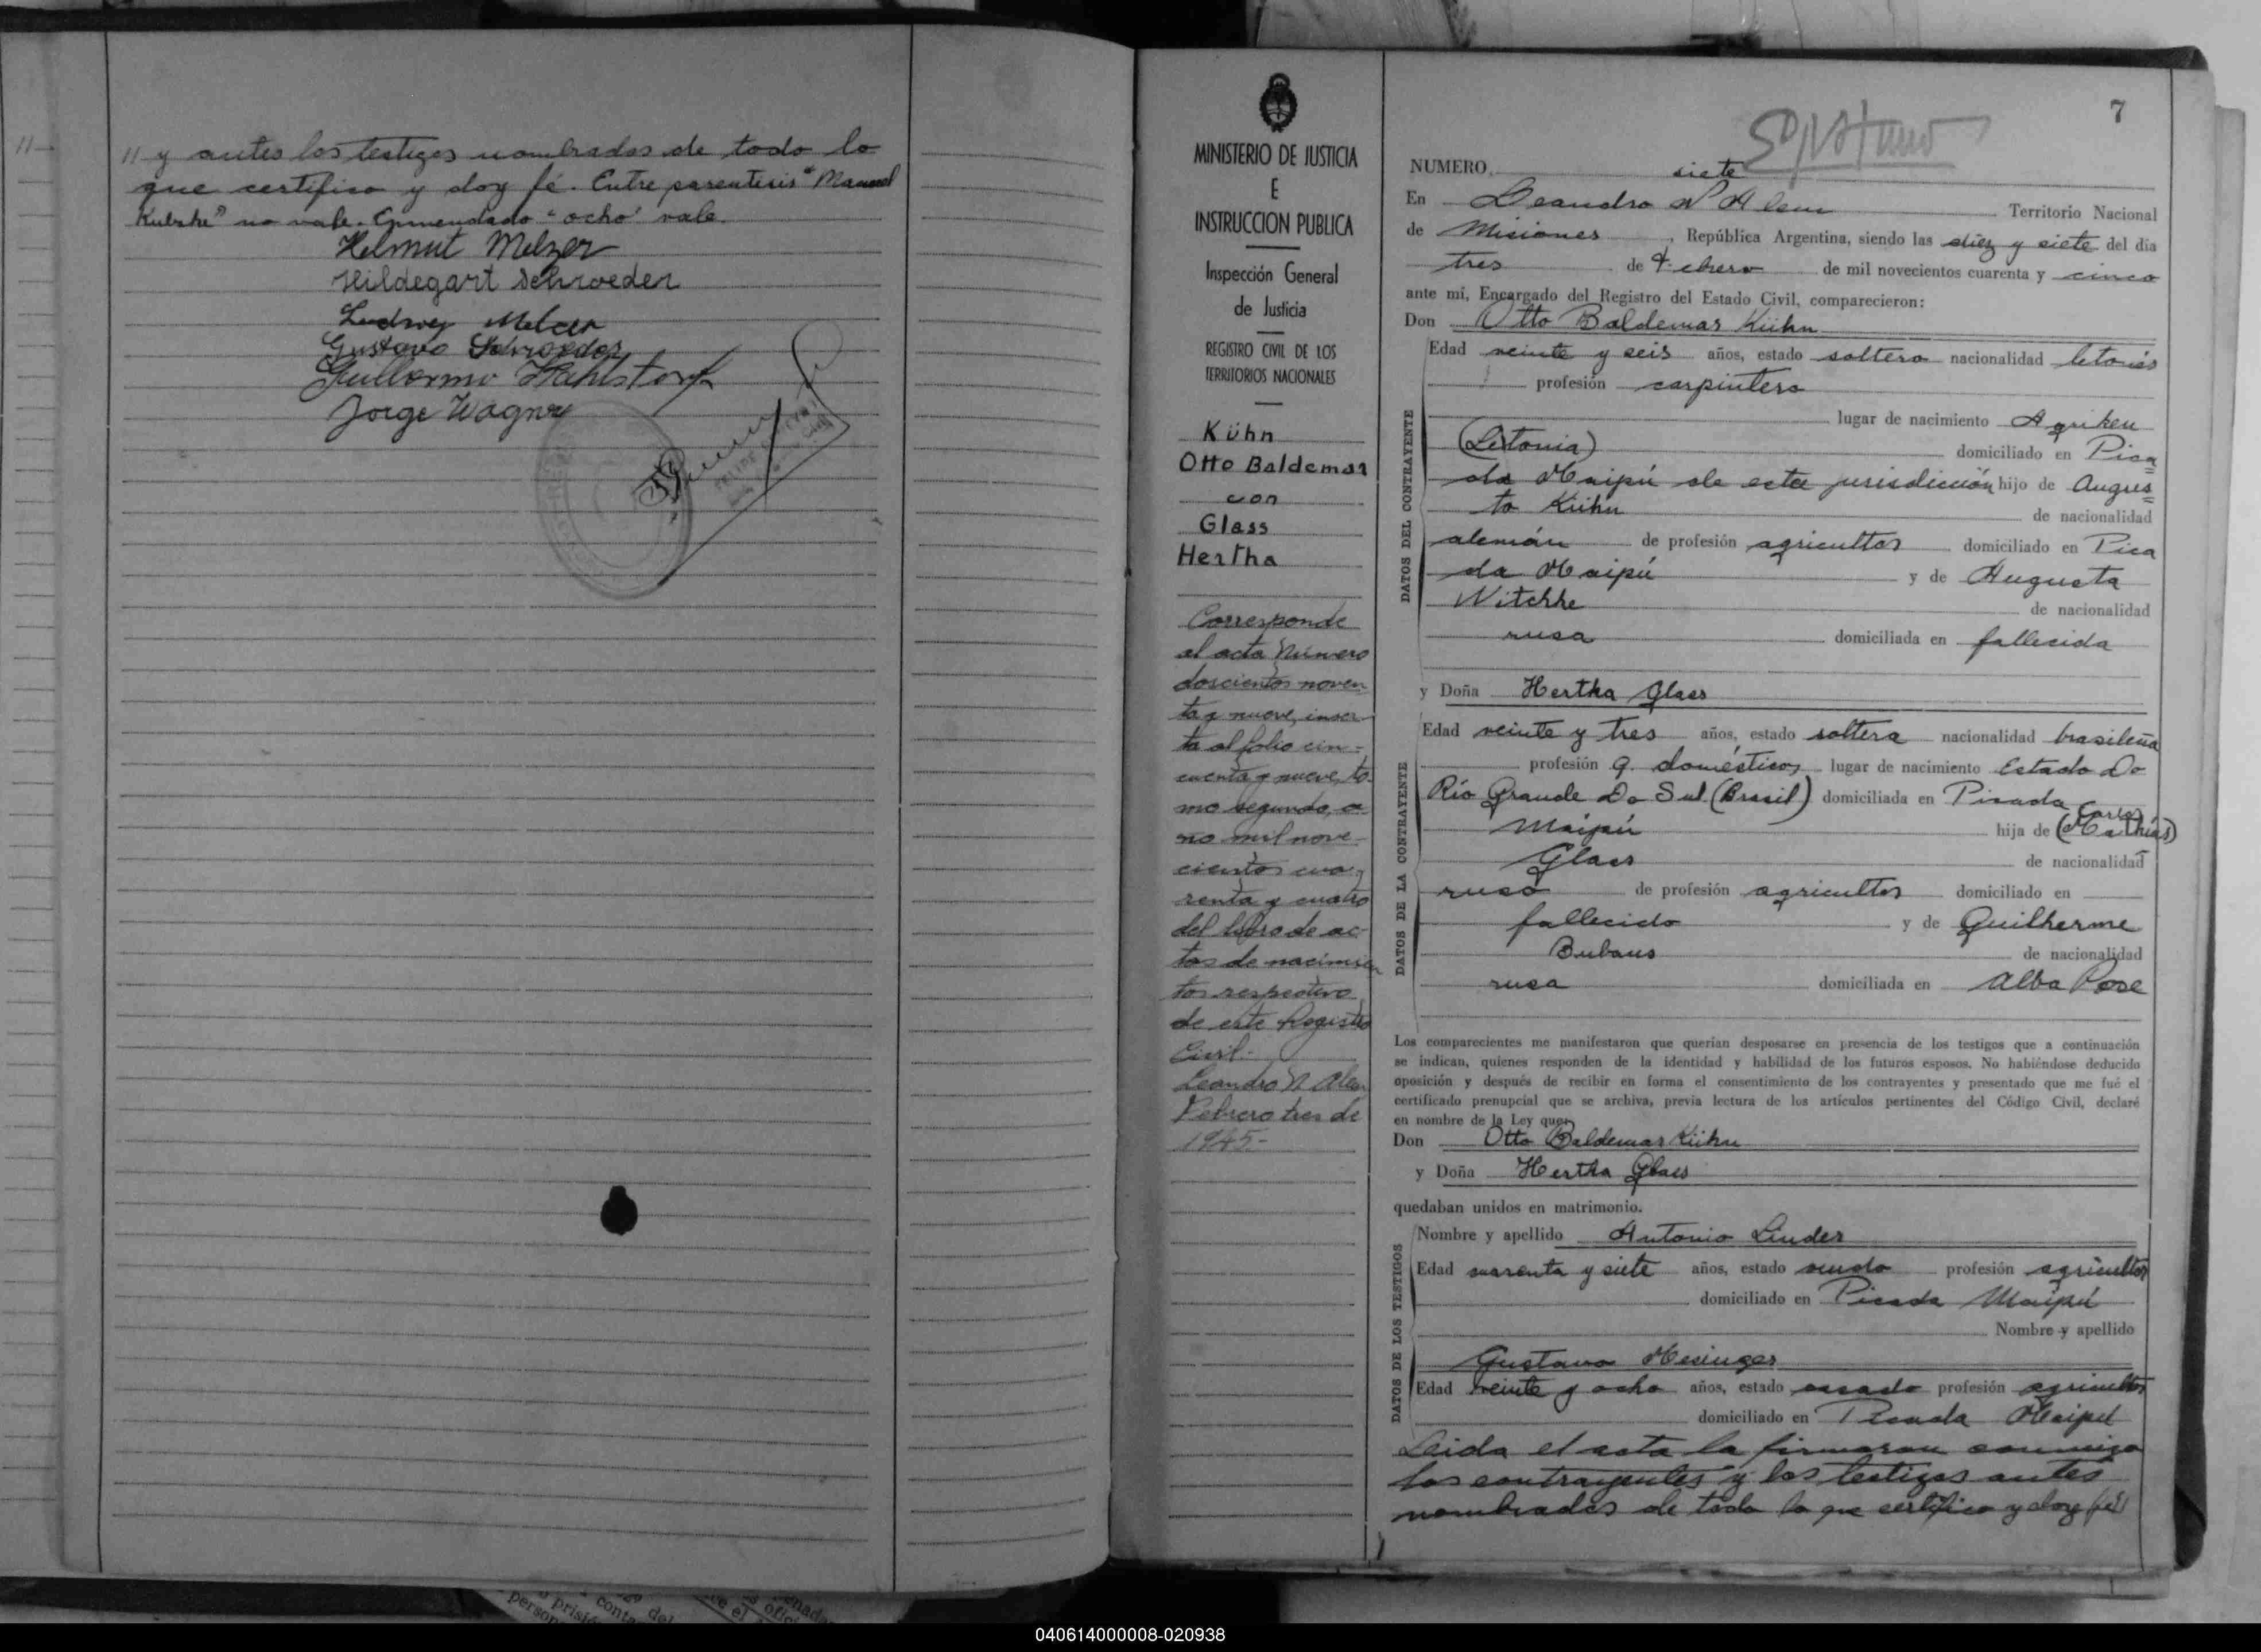 11 y antes los testigos nombrados de todo lo
que certifico y doy fé. Entre parentisis "Manuel
Kubzke" no vale. Enmendado "ocho" vale.
Helmut Melzer
Hildegart Schroeder
Ludwig Melcer
Gustavo Schroeder
Guillermo Wahlstorf
Jorge Wagner
MINISTERIO DE JUSTICIA
E
INSTRUCCION PUBLICA
Inspección General
de Justicia
REGISTRO CIVIL DE LOS
TERRITORIOS NACIONALES
Kühn
Otto Baldemar
con
Glass
Hertha
Corresponde
al acta Número
doscientos noven
ta y nueve, inser-
ta al folio cin-
cuenta y nueve, to
mo segundo, a
ño mil nove-
cientos cua-
renta y cuatro
del libro de ac-
tas de nacimien
tos respectivo
de este Registro
Civil.-
Leandro N Alem
Febrero tres de
1945.-
7
NUMERO siete
En Leandro N Alem Territorio Nacional
de Misiones, República Argentina, siendo las diez y siete del día
tres de Febrero de mil novecientos cuarenta y cinco
ante mí, Encargado del Registro del Estado Civil, comparecieron:
Don Otto Baldemar Kühn
DATOS DEL CONTRAYENTE
Edad veinte y seis años, estado soltero nacionalidad letonés
profesión carpintero
lugar de nacimiento Agriken
(Letonia) domiciliado en Pica=
da Maipú de esta jurisdicción hijo de Augus=
to Kühn de nacionalidad
alemán de profesión agricultor domiciliado en Pica
da Maipú y de Augusta
Witchke de nacionalidad
rusa domiciliada en fallecida
y Doña Hertha Glass
DATOS DE LA CONTRAYENTE
Edad veinte y tres años, estado soltera nacionalidad brasileña
profesión q. domésticos lugar de nacimiento Estado Do
Río Grande Do Sul (Brasil) domiciliada en Picada
Carlos
Maipú hija de (Mathías)
Glass de nacionalidad
ruso de profesión agricultor domiciliado en
fallecido y de Guilherme
Bubans de nacionalidad
rusa domiciliada en Alba Pose
Los comparecientes me manifestaron que querían desposarse en presencia de los testigos que a continuación
se indican, quienes responden de la identidad y habilidad de los futuros esposos. No habiéndose deducido
oposición y después de recibir en forma el consentimiento de los contrayentes y presentado que me fué el
certificado prenupcial que se archiva, previa lectura de los artículos pertinentes del Código Civil, declaré
en nombre de la Ley que:
Don Otto Baldemar Kühn
y Doña Hertha Glass
quedaban unidos en matrimonio.
DATOS DE LOS TESTIGOS
Nombre y apellido Antonio Linder
Edad cuarenta y siete años, estado viudo profesión agricultor
domiciliado en Picada Maipú
Nombre y apellido
Gustavo Mesinger
Edad veinte y ocho años, estado casado profesión agricultor
domiciliado en Picada Maipú
Leida el acta la firmaron conmigo
los contrayentes y los testigos antes
nombrados de todo lo que certifico y doy fé
040614000008-020938